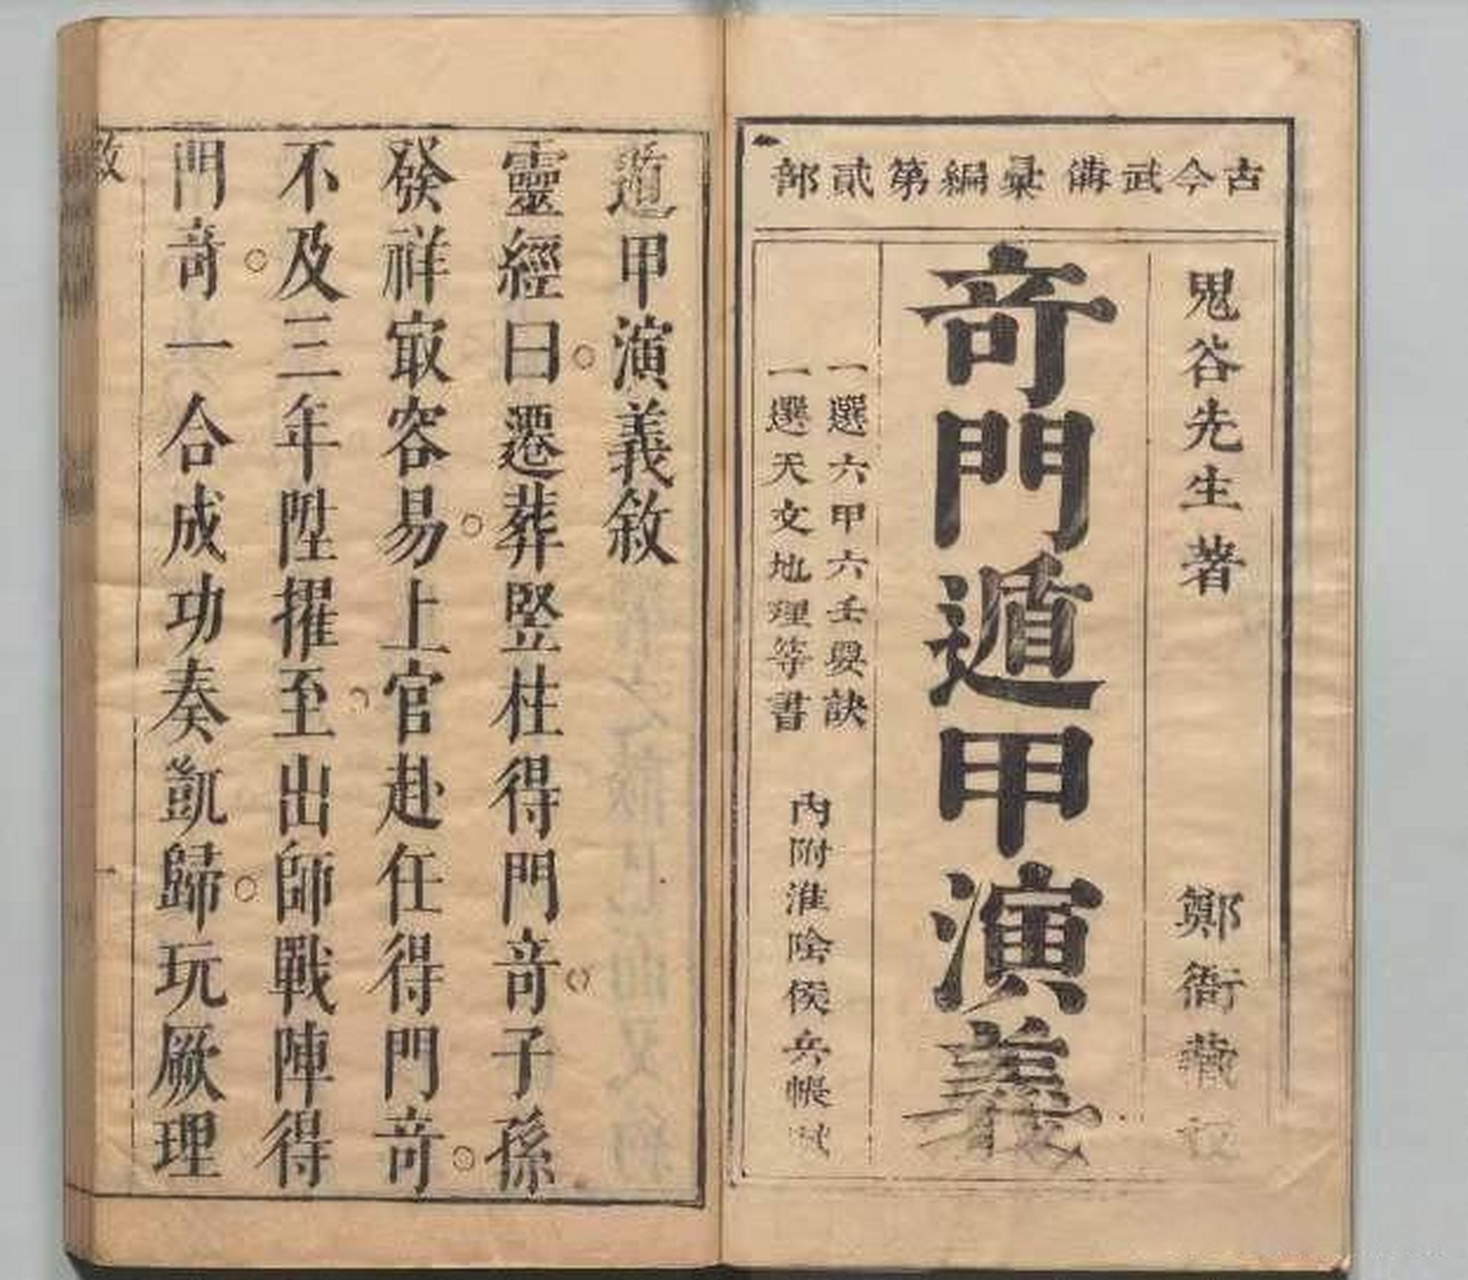 古今武備彙編第貳部
鬼谷先生著
鄭衙藏板
奇門遁甲演義
一選六甲六壬要訣
一選天文地理等書
內附淮陰侯兵帳
遁甲演義敘
靈經曰遷葬竪柱得門竒子孫
發祥㝡容易上官赴任得門竒
不及三年陞擢至出師戰陣得
門竒一合成功奏凱歸玩厥理
敘